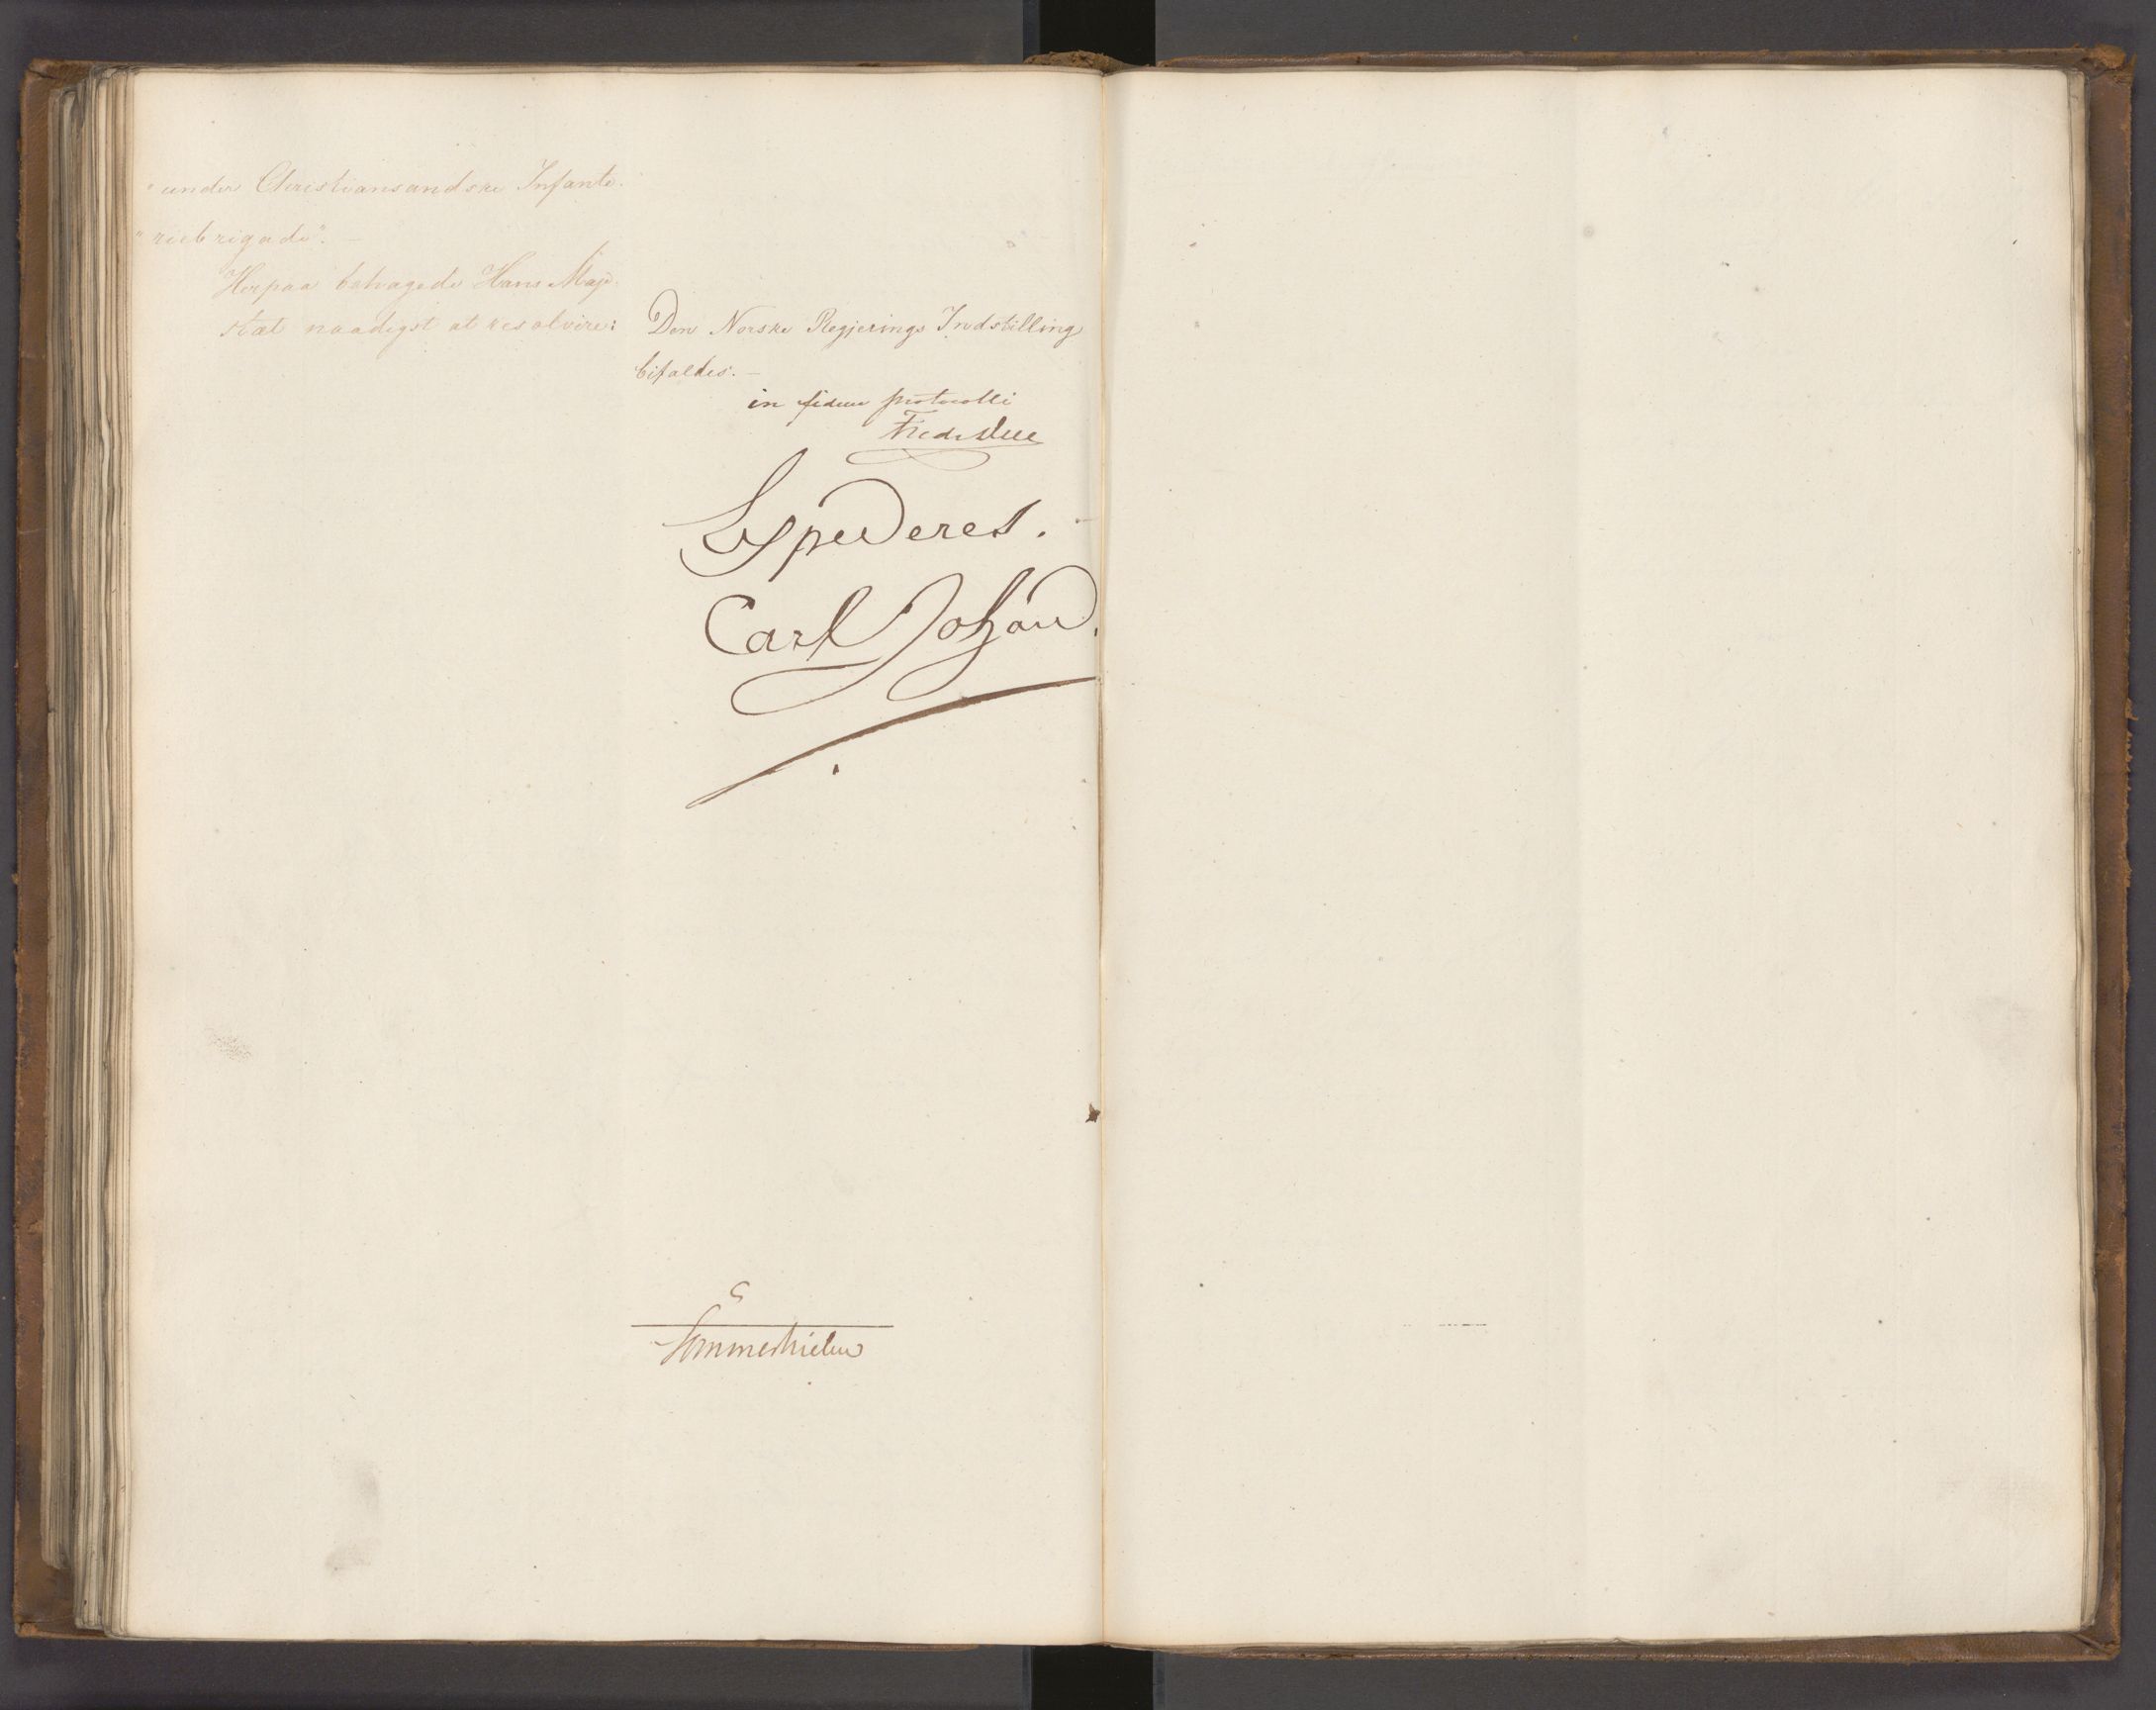 "under Christiansandske Infante-
"riebrigade". —
Herpaa behagede Hans Maje-
stæt naadigst at resolvere:
Den Norske Regjerings Indstilling
bifaldes. —
in fidem protocolli
Fred: Due
Expederes.
Carl Johan.
Sommerhielm